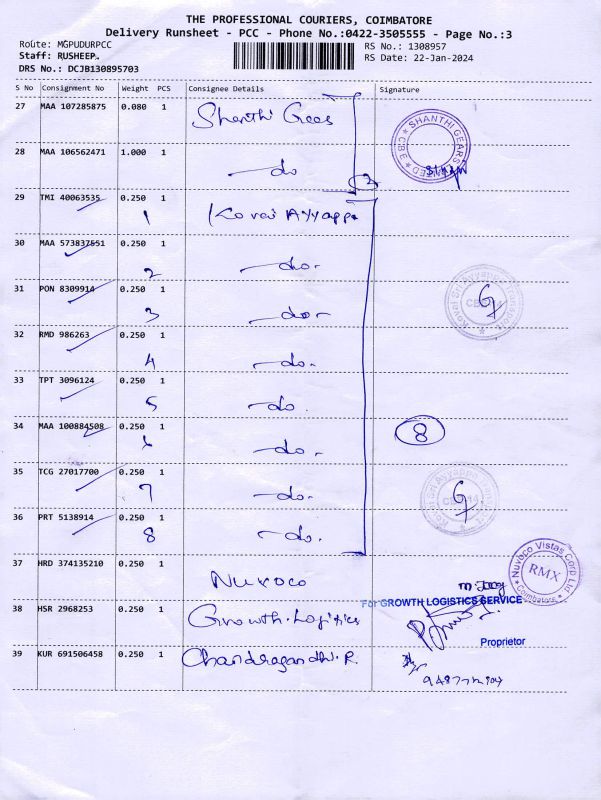 THE PROFESSIONAL COURIERS, COIMBATORE
Delivery Runsheet - PCC - Phone No.:0422-3505555 - Page No.:3
Route: MGPUDURPCC
RS No.: 1308957
Staff: RUSHEEP.
RS Date: 22-Jan-2024
DRS No.: DCJB130895703
S No Consignment No Weight PCS Consignee Details Signature
27 MAA 107285875 0.080 1 Shanthi Gears
SHANTHI GEARS LIMITED * CB-3 *
28 MAA 106562471 1.000 1 -do
2
29 TMI 40063535 0.250 1 Kovai Ayyappa
1
30 MAA 573837551 0.250 1 -do-
2
31 PON 8309914 0.250 1 -do-
3
Kovai Sri Ayyappa Transport
32 RMD 986263 0.250 1 -do-
4
33 TPT 3096124 0.250 1 -do.
5
34 MAA 100884508 0.250 1 -do-
6
8
35 TCG 27017700 0.250 1 -do-
7
36 PRT 5138914 0.250 1 -do.
8
37 HRD 374135210 0.250 1 Nuvoco
Nuvoco Vistas Corp Ltd
RMX
* Coimbatore *
38 HSR 2968253 0.250 1 Growth.Logistics
For GROWTH LOGISTICS SERVICE
Proprietor
39 KUR 691506458 0.250 1 Chandragandhi.R.